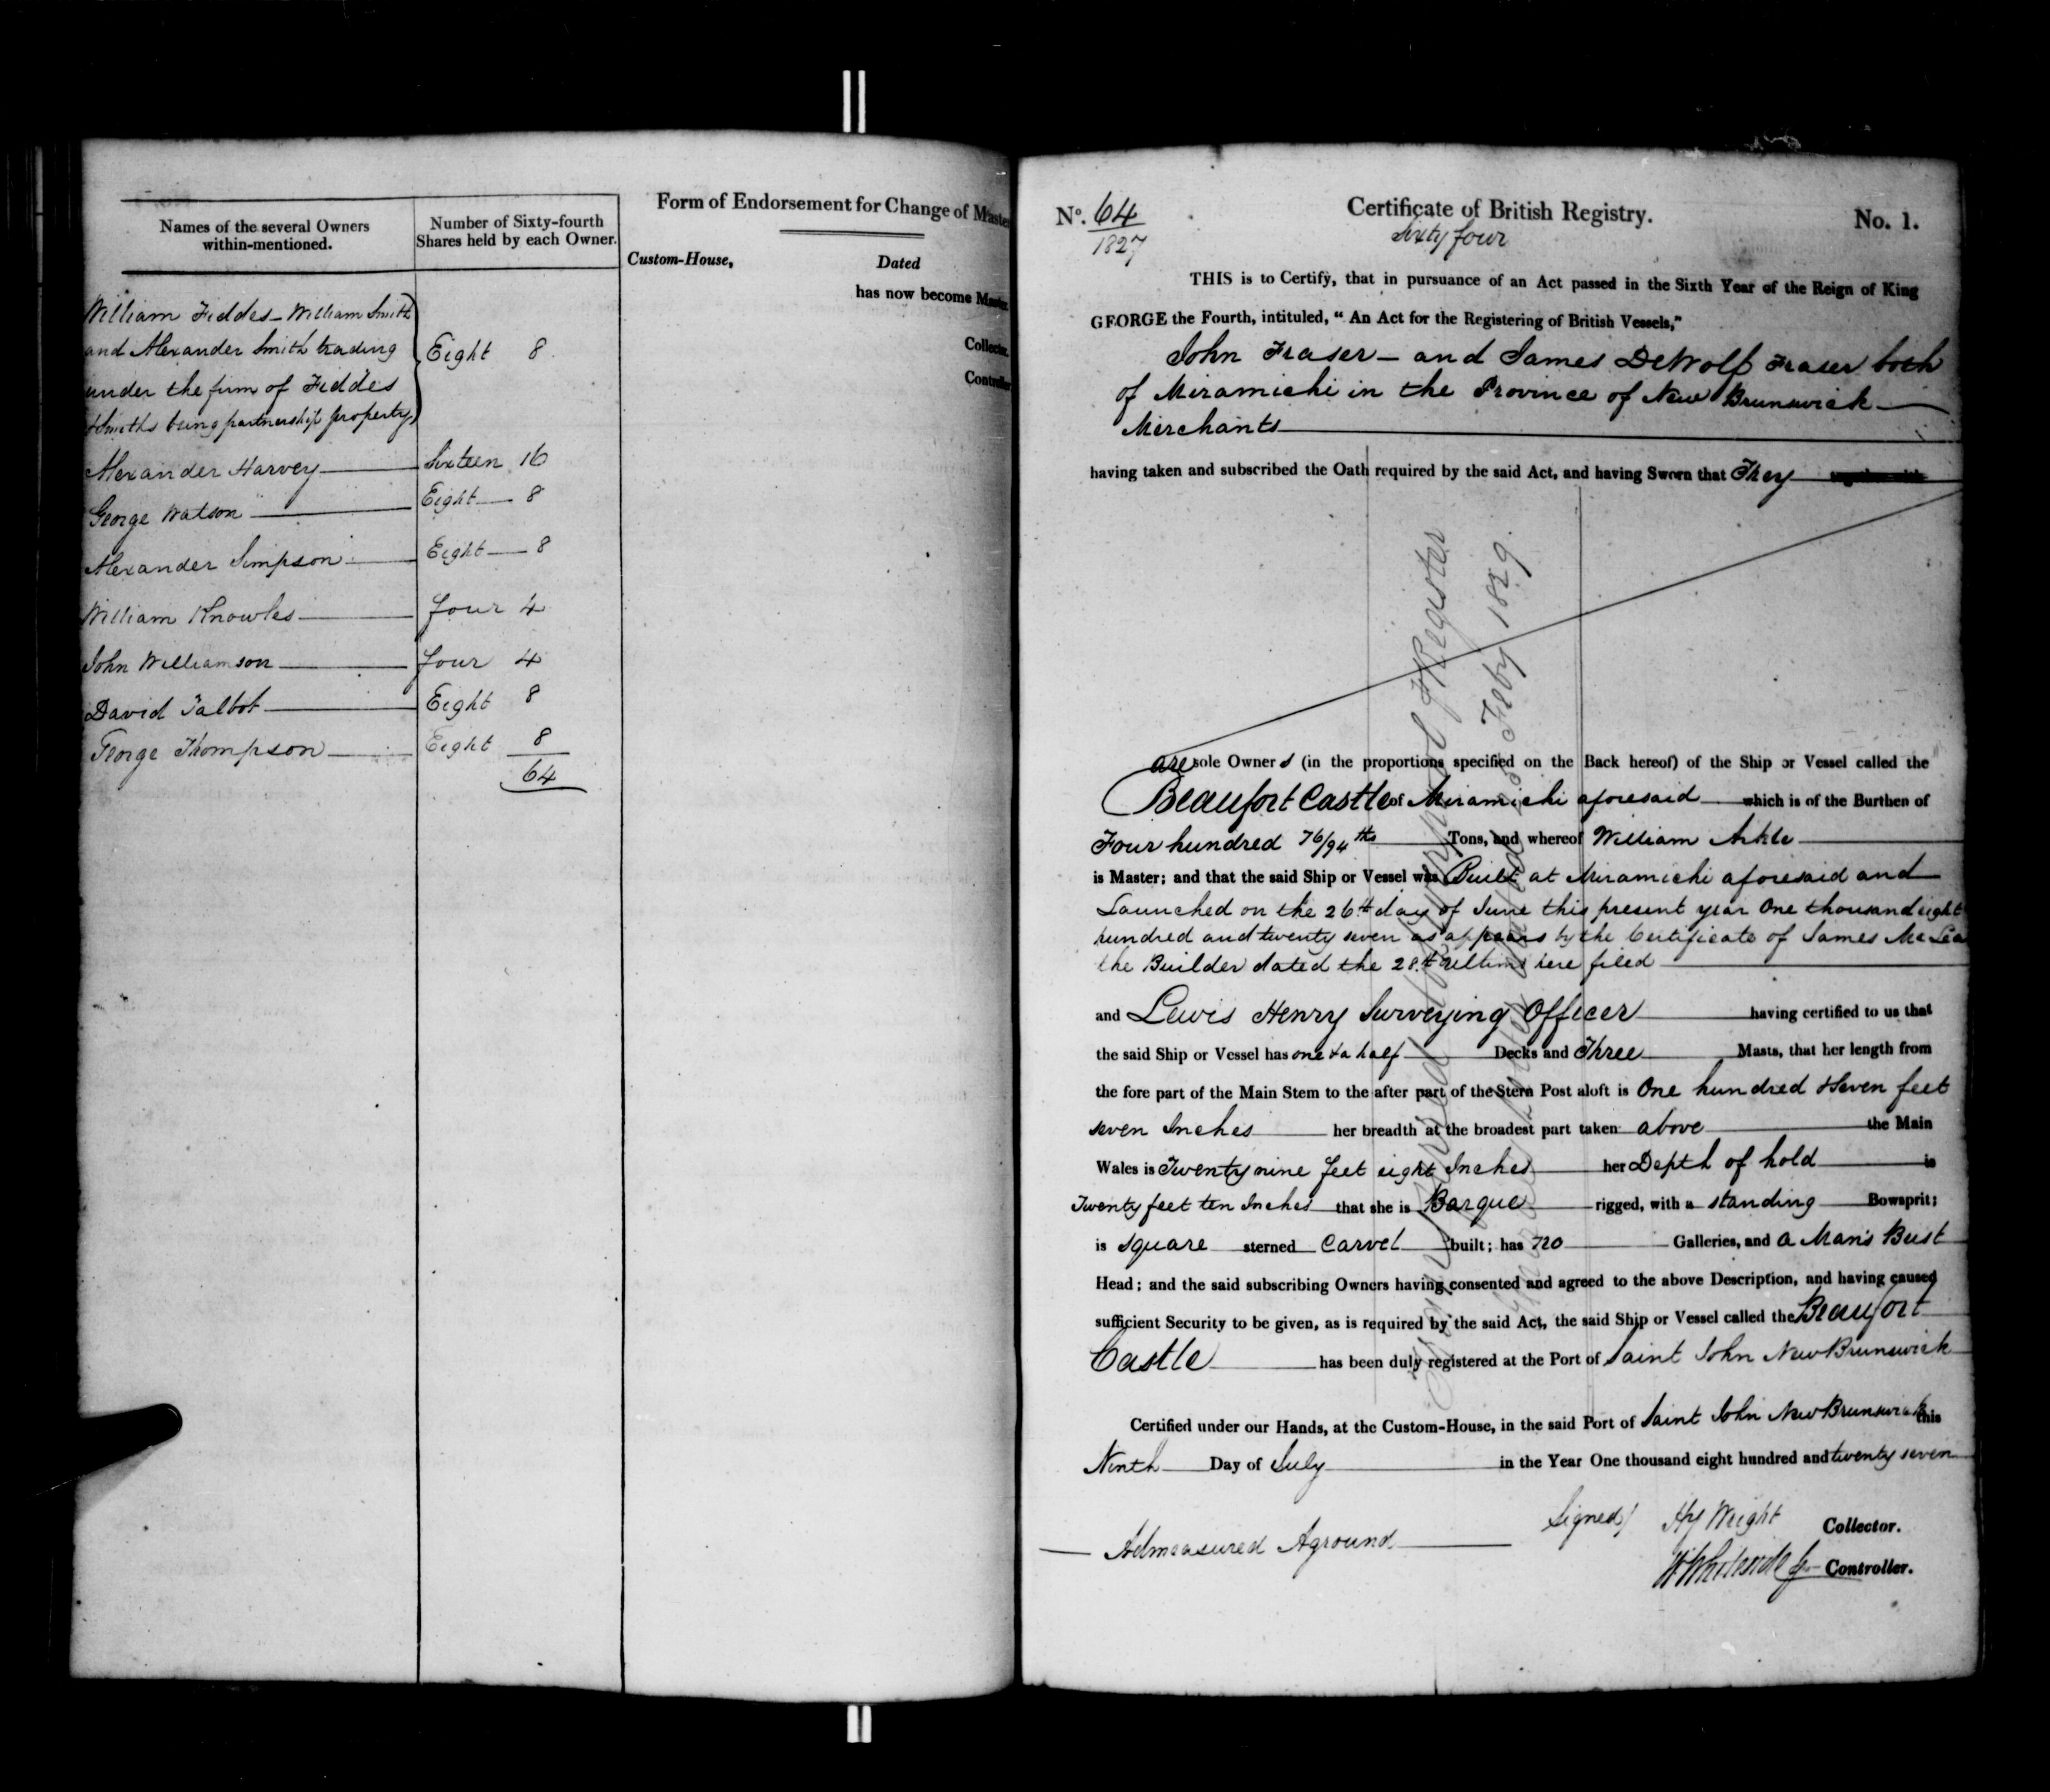 Names of the several Owners
within-mentioned.
Number of Sixty-fourth
Shares held by each Owner.
William Fiddes — William Smith
and Alexander Smith trading
under the firm of Fiddes
& Smiths being partnership property
Eight 8
Alexander Harvey — Sixteen 16
George Watson — Eight — 8
Alexander Simpson — Eight — 8
William Knowles — four 4
John Williamson — four 4
David Talbot — Eight 8
George Thompson — Eight 8
64
Form of Endorsement for Change of Master
Custom-House, Dated
has now become Master.
Collector.
Controller
No. 64 Certificate of British Registry. No. 1.
1827 Sixty four
THIS is to Certify, that in pursuance of an Act passed in the Sixth Year of the Reign of King
GEORGE the Fourth, intituled, “ An Act for the Registering of British Vessels,”
John Fraser — and James DeWolf Fraser both
of Miramichi in the Province of New Brunswick —
Merchants
having taken and subscribed the Oath required by the said Act, and having Sworn that They together with
are sole Owners (in the proportions specified on the Back hereof) of the Ship or Vessel called the
Beaufort Castle of Miramichi aforesaid which is of the Burthen of
Four hundred 76/94ths Tons, and whereof William Arkle
is Master; and that the said Ship or Vessel was Built at Miramichi aforesaid and
Launched on the 26th day of June this present year One thousand eight
hundred and twenty seven as appears by the Certificate of James
the Builder dated the 28th Ultimo here filed
and Lewis Henry Surveying Officer having certified to us that
the said Ship or Vessel has one & a half Decks and Three Masts, that her length from
the fore part of the Main Stem to the after part of the Stern Post aloft is One hundred & seven feet
seven Inches her breadth at the broadest part taken above the Main
Wales is Twenty nine feet eight Inches her Depth of hold is
Twenty feet ten Inches that she is Barque rigged, with a standing Bowsprit;
is square sterned Carvel built; has no Galleries, and a Man's Bust
Head; and the said subscribing Owners having consented and agreed to the above Description, and having caused
sufficient Security to be given, as is required by the said Act, the said Ship or Vessel called the Beaufort
Castle has been duly registered at the Port of Saint John New Brunswick
Certified under our Hands, at the Custom-House, in the said Port of Saint John New Brunswick this
Ninth Day of July in the Year One thousand eight hundred and twenty seven
Signed/ Hy Wright Collector.
Admeasured Aground
Controller.
Register
Feby 1829.